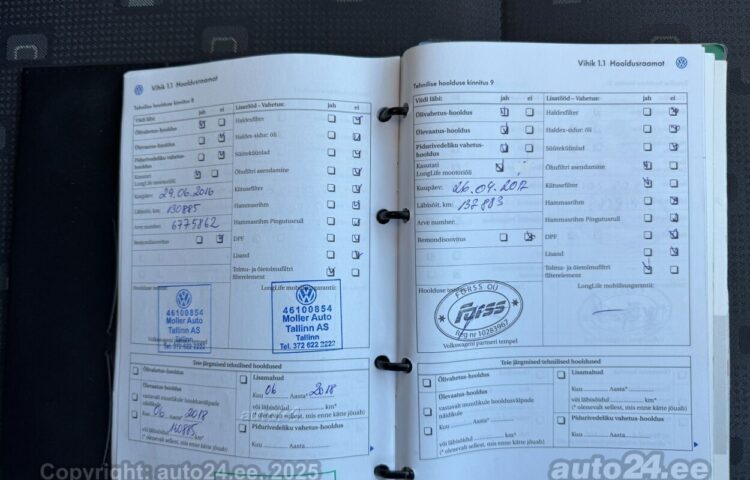 Vihik 1.1 Hooldusraamat
Tehnilise hoolduse kinnitus 8
Viidi läbi: jah ei
Lisatööd – Vahetus: jah ei
Õlivahetus-hooldus
Õlevaatus-hooldus
Pidurivedeliku vahetus-hooldus
Kasutati
LongLife mootoriõli
Kuupäev: 29.06.2016
Läbisõit, km: 130885
Arve number: 6775862
Remondisoovitus
Haldexfilter
Haldex-sidur: õli
Süüteküünlad
Õhufiltri asendamine
Kütusefilter
Hammasrihm
Hammasrihm Pingutusrull
DPF
Lisand
Tolmu- ja õietolmufiltri
filterelement
Hoolduse
LongLife mobiilsusgarantii:
46100854
Moller Auto
Tallinn AS
Tallinn
Tel. 372 622 2222
46100854
Moller Auto
Tallinn AS
Tallinn
Tel. 372 622 2222
Volkswageni partneri tempel
Teie järgmised tehnilised hooldused
Õlivahetus-hooldus
Ülevaatus-hooldus
vastavalt muutlikule hooldusvälpade
näidikule
Kuu 06 Aasta 2018
või läbisõidul 160885 km
(* olenevalt sellest, mis enne kätte jõuab)
Lisamahud
Kuu 06 Aasta* 2018
või läbisõidul km*
(* olenevalt sellest, mis enne kätte jõuab)
Pidurivedeliku vahetus-hooldus
Kuu Aasta
Vihik 1.1 Hooldusraamat
Tehnilise hoolduse kinnitus 9
Viidi läbi: jah ei
Lisatööd – Vahetus: jah ei
Õlivahetus-hooldus
Ülevaatus-hooldus
Pidurivedeliku vahetus-
hooldus
Kasutati
LongLife mootoriõli
Kuupäev: 26.04.2017
Läbisõit, km: 137883
Arve number:
Remondisoovitus
Haldexfilter
Haldex-sidur: õli
Süüteküünlad
Õhufiltri asendamine
Kütusefilter
Hammasrihm
Hammasrihm Pingutusrull
DPF
Lisand
Tolmu- ja õietolmufiltri
filterelement
Hoolduse
LongLife mobiilsusgarantii:
FORSS OÜ
Forss
Reg nr 10283967
Volkswageni partneri tempel
Teie järgmised tehnilised hooldused
Õlivahetus-hooldus
Ülevaatus-hooldus
vastavalt muutlikule hooldusvälpade
näidikule
Kuu Aasta
või läbisõidul km
(* olenevalt sellest, mis enne kätte jõuab)
Lisamahud
Kuu Aasta*
või läbisõidul km*
(* olenevalt sellest, mis enne kätte jõuab)
Pidurivedeliku vahetus-hooldus
Kuu Aasta
Copyright: auto24.ee, 2025
auto24.ee